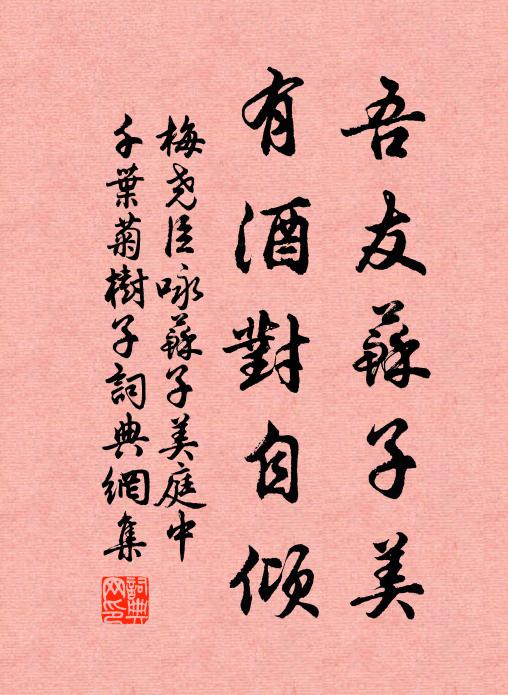 吾友蘇子美
有酒對自傾
梅堯臣詠蘇子美庭中
千葉菊樹子詞典網集
詞典網印